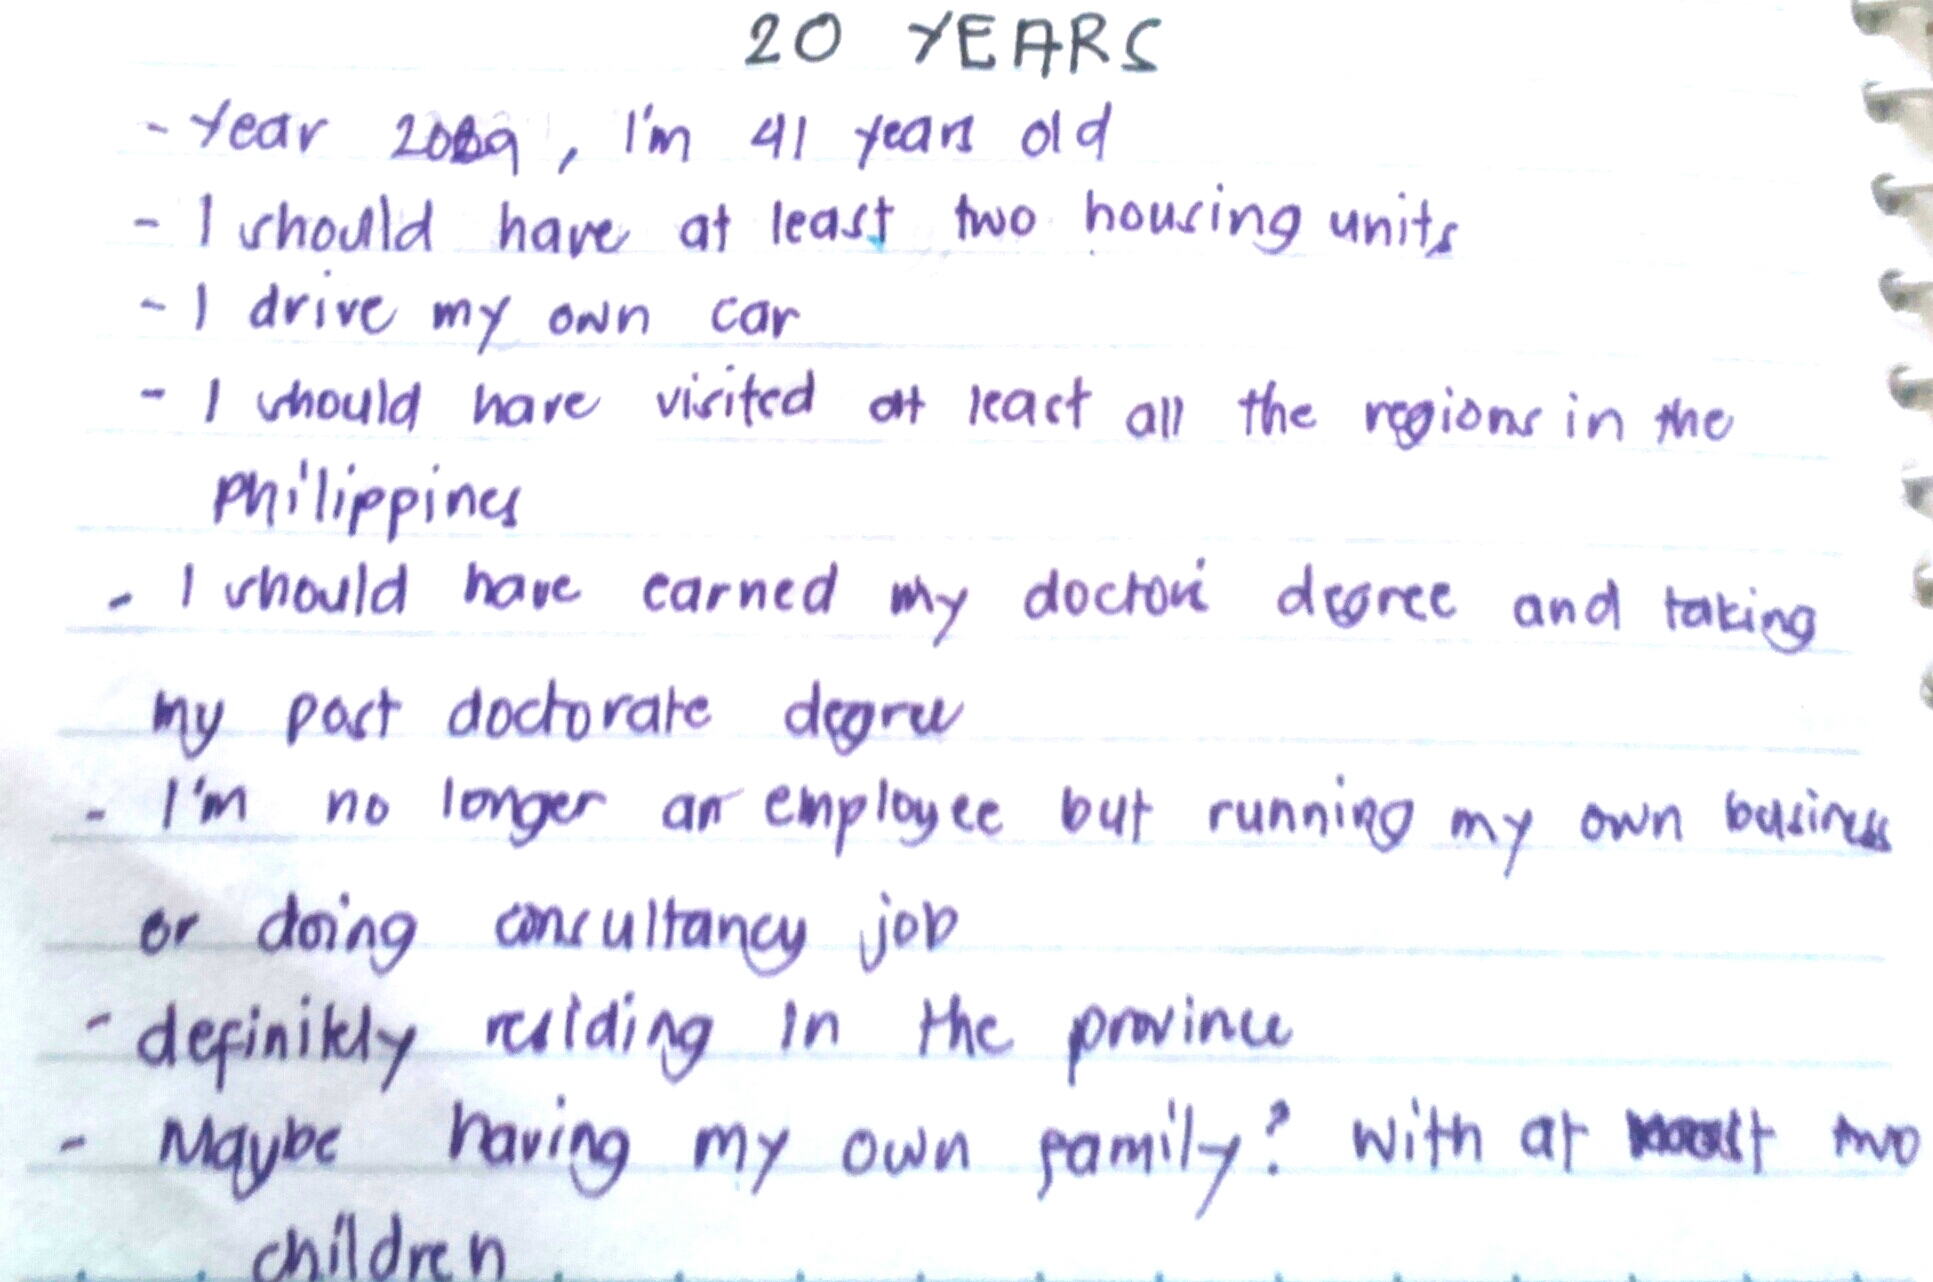 20 YEARS
- Year , I'm 41 years old
- I should have at least two housing units
- I drive my own car
- I should have visited at least all the regions in the
Philippines
- I should have earned my doctors degree and taking
my post doctorate degree
- I'm no longer an employee but running my own business
or doing consultancy job
- definitely residing in the province
- Maybe having my own family? With at most two
children